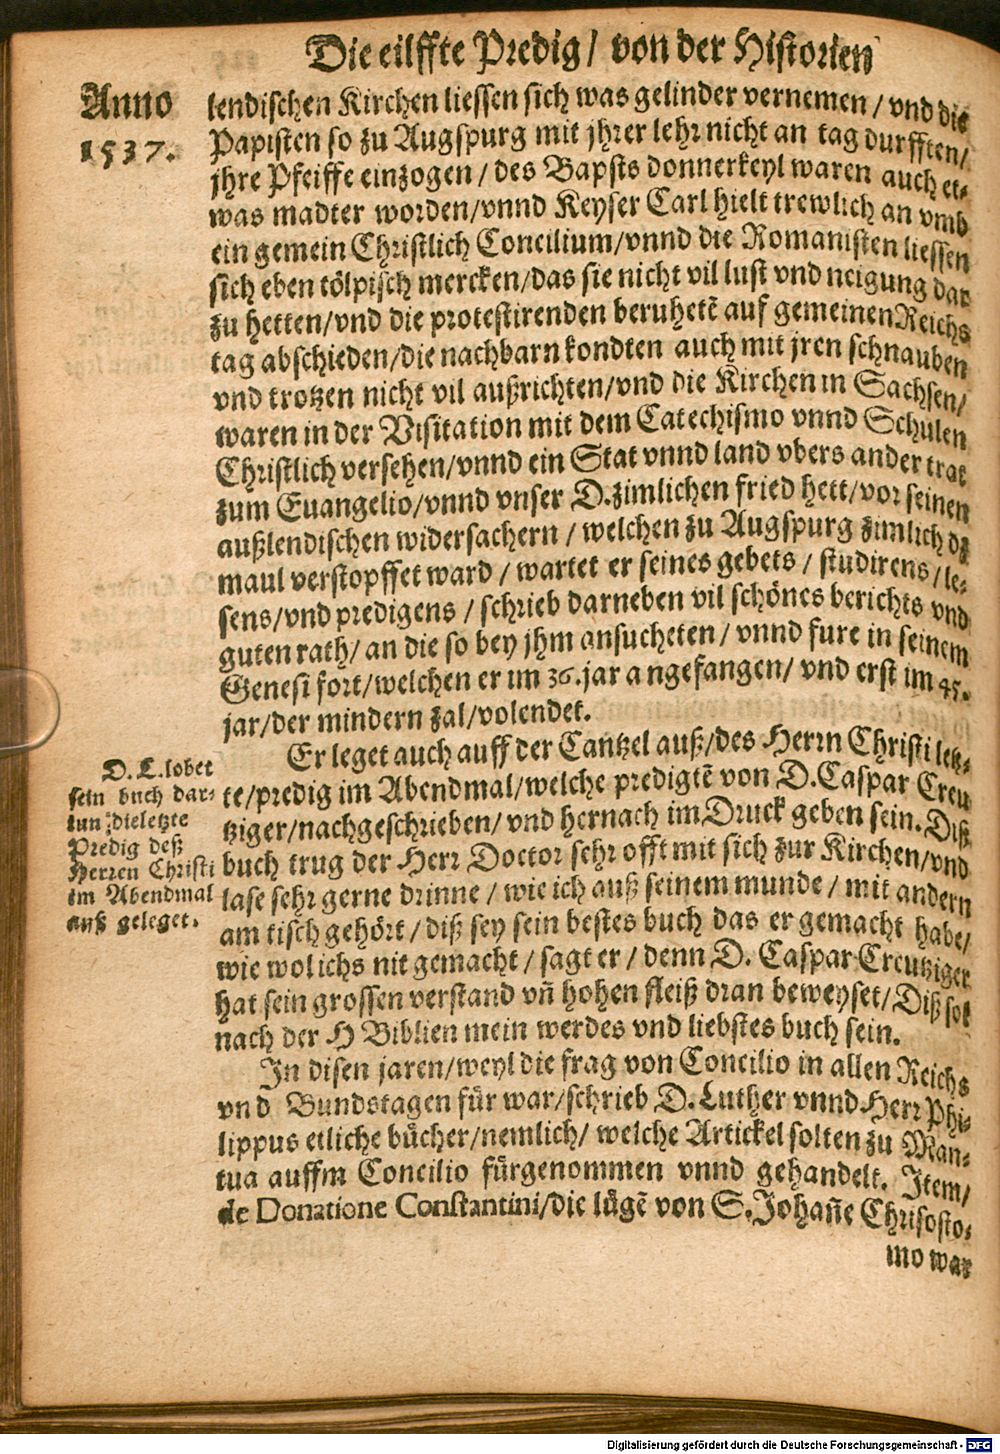 Die eilffte Predig / von der Historien
Anno
1537.
lendischen Kirchen liessen sich was gelinder vernemen / vnd die
Papisten so zu Augspurg mit jhrer lehr nicht an tag durfften /
jhre Pfeiffe einzogen / des Bapsts donnerkeyl waren auch et-
was madter worden / vnnd Keyser Carl hielt trewlich an vmb
ein gemein Christlich Concilium / vnnd die Romanisten liessen
sich eben tölpisch mercken / das sie nicht vil lust vnd neigung dar
zu hetten / vnd die protestirenden beruhetẽ auf gemeinen Reichs
tag abschieden / die nachbarn kondten auch mit jren schnauben
vnd trotzen nicht vil außrichten / vnd die Kirchen in Sachsen /
waren in der Visitation mit dem Catechismo vnnd Schulen
Christlich versehen / vnnd ein Stat vnnd land vbers ander trat
zum Euangelio / vnnd vnser D. zimlichen fried hett / vor seinen
außlendischen widersachern / welchen zu Augspurg zimlich dz
maul verstopffet ward / wartet er seines gebets / studirens / le-
sens / vnd predigens / schrieb darneben vil schönes berichts vnd
guten rath / an die so bey jhm ansucheten / vnnd fure in seinem
Genesi fort / welchen er im 36. jar angefangen / vnd erst im 45.
jar / der mindern zal / volendet.
Er leget auch auff der Cantzel auß / des Herrn Christi letz-
te / predig im Abendmal / welche predigtẽ von D. Caspar Creu
tziger / nachgeschrieben / vnd hernach im Druck geben sein. Diß
buch trug der Herr Doctor sehr offt mit sich zur Kirchen / vnd
lase sehr gerne drinne / wie ich auß seinem munde / mit andern
am tisch gehört / diß sey sein bestes buch das er gemacht habe /
wie wol ichs nit gemacht / sagt er / denn D. Caspar Creutziger
hat sein grossen verstand vñ hohen fleiß dran beweyset / Diß sol
nach der H Biblien mein werdes vnd liebstes buch sein.
D. L. lobet
sein buch dar-
inn die letzte
Predig deß
Herren Christi
im Abendmal
auß geleget.
In disen jaren / weyl die frag von Concilio in allen Reichs
vnd Bundstagen für war / schrieb D. Luther vnnd Herr Phi-
lippus etliche bücher / nemlich / welche Artickel solten zu Man-
tua auffm Concilio fürgenommen vnnd gehandelt. Item /
de Donatione Constantini / die lügẽ von S. Johañe Chrisosto-
mo war
Digitalisierung gefördert durch die Deutsche Forschungsgemeinschaft - DFG